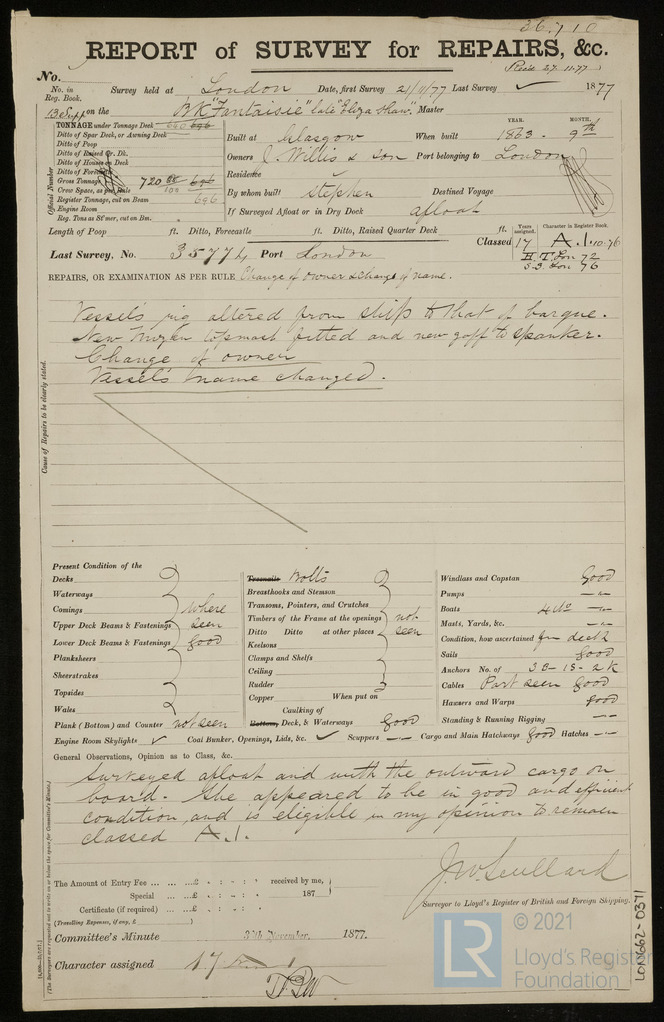 36710
REPORT of SURVEY for REPAIRS, &c.
No.
Recd 27.11.77
No. in Reg. Book.
Survey held at London Date, first Survey 21/11/77 Last Survey ✓ 1877
13 Supp on the BK "Fantaisie" late "Eliza Shaw" Master
TONNAGE under Tonnage Deck
Ditto of Spar Deck, or Awning Deck
Ditto of Poop
Ditto of Raised Qr. Dk.
Ditto of Houses on Deck
Ditto of Forecastle
Gross Tonnage 720
Crew Space, as per Rule
Register Tonnage, cut on Beam 696
Engine Room
Reg. Tons as St'mer, cut on Bm.
Official Number
Built at Glasgow When built YEAR. 1863 - MONTH. 9th
Owners J. Willis & Son Port belonging to London
Residence
By whom built Stephen Destined Voyage
If Surveyed Afloat or in Dry Dock afloat
Length of Poop ft. Ditto, Forecastle ft. Ditto, Raised Quarter Deck ft.
Classed Years assigned. 17 Character in Register Book. A.1. 10.76
H.T. Lon 72
S.S. Lon 76
Last Survey, No. 35774 Port London
REPAIRS, OR EXAMINATION AS PER RULE Change of owner & change of name.
Vessel's rig altered from ship to that of barque.
New Mizen topmast fitted and new gaff to spanker.
Change of owner
Vessel's name changed.
Cause of Repairs to be clearly stated.
Present Condition of the
Decks
Waterways
Comings where
Upper Deck Beams & Fastenings seen
Lower Deck Beams & Fastenings good
Planksheers
Sheerstrakes
Topsides
Wales
Plank (Bottom) and Counter not seen
Treenails Bolts
Breasthooks and Stemson
Transoms, Pointers, and Crutches
Timbers of the Frame at the openings not
Ditto Ditto at other places seen
Keelsons
Clamps and Shelfs
Ceiling
Rudder
Copper When put on
Caulking of
Bottom, Deck, & Waterways good
Windlass and Capstan Good
Pumps -"-
Boats 4 -"-
Masts, Yards, &c. -"-
Condition, how ascertained fm deck
Sails good
Anchors No. of 3B - 1S - 2K
Cables Part seen good
Hawsers and Warps good
Standing & Running Rigging -"-
Engine Room Skylights ✓ Coal Bunker, Openings, Lids, &c. ✓ Scuppers -"- Cargo and Main Hatchways good Hatches -"-
General Observations, Opinion as to Class, &c.
Surveyed afloat and with the outward cargo on
board. She appeared to be in good and efficient
condition and is eligible in my opinion to remain
classed A.1.
The Amount of Entry Fee £ : : received by me,
Special £ : : 187
Certificate (if required) £ : :
(Travelling Expenses, if any, £ )
J. W. Scullard
Surveyor to Lloyd's Register of British and Foreign Shipping.
Committee's Minute November, 1877.
Character assigned 17
(The Surveyors are requested not to write on or below the space for Committee's Minute.)
LON662-0371
LR
© 2021
Lloyd's Register
Foundation